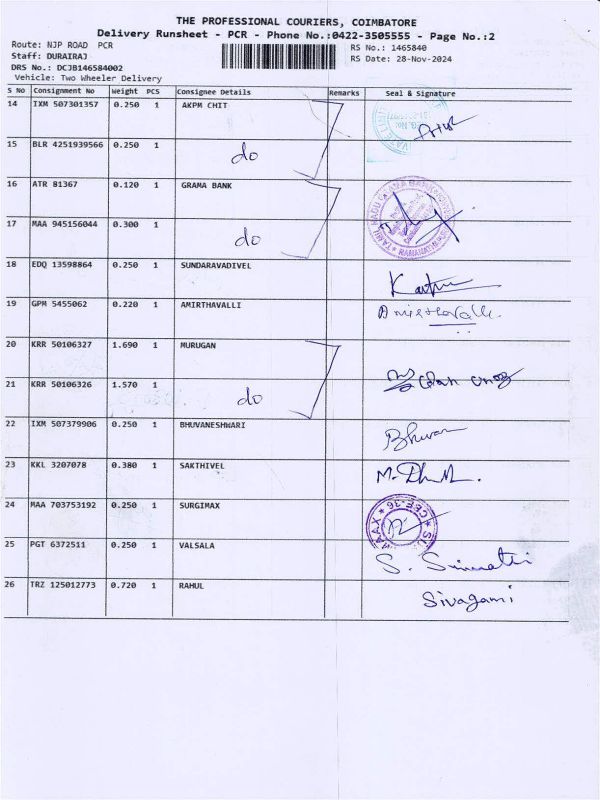 THE PROFESSIONAL COURIERS, COIMBATORE
Delivery Runsheet - PCR - Phone No.:0422-3505555 - Page No.:2
Route: NJP ROAD PCR
RS No.: 1465840
Staff: DURAIRAJ
RS Date: 28-Nov-2024
DRS No.: DCJB146584002
Vehicle: Two Wheeler Delivery
S No Consignment No Weight PCS Consignee Details Remarks Seal & Signature
14 IXM 507301357 0.250 1 AKPM CHIT
15 BLR 4251939566 0.250 1
do
16 ATR 81367 0.120 1 GRAMA BANK
17 MAA 945156044 0.300 1
do
18 EDQ 13598864 0.250 1 SUNDARAVADIVEL
19 GPM 5455062 0.220 1 AMIRTHAVALLI
Amirthavalli.
20 KRR 50106327 1.690 1 MURUGAN
21 KRR 50106326 1.570 1
do
22 IXM 507379906 0.250 1 BHUVANESHWARI
Bhuvan
23 KKL 3207078 0.380 1 SAKTHIVEL
24 MAA 703753192 0.250 1 SURGIMAX
25 PGT 6372511 0.250 1 VALSALA
S. Srimathi
26 TRZ 125012773 0.720 1 RAHUL
Sivagami